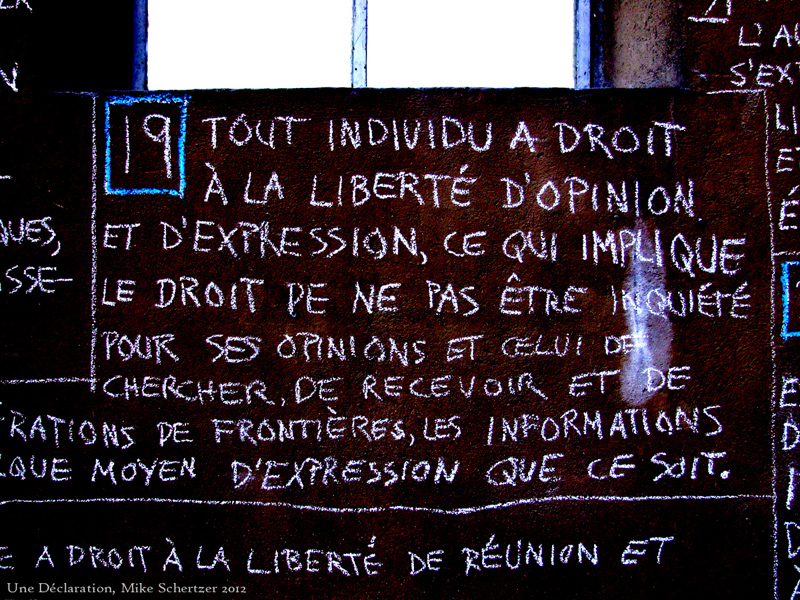 L'AU
S'EXT
19 TOUT INDIVIDU A DROIT
À LA LIBERTÉ D'OPINION
ET D'EXPRESSION, CE QUI IMPLIQUE
LE DROIT DE NE PAS ÊTRE INQUIÉTÉ
POUR SES OPINIONS ET CELUI DE
CHERCHER, DE RECEVOIR ET DE
RATIONS DE FRONTIÈRES, LES INFORMATIONS
QUE MOYEN D'EXPRESSION QUE CE SOIT.
UES,
ISSE-
LI
ET
É
E A DROIT À LA LIBERTÉ DE RÉUNION ET
Une Déclaration, Mike Schertzer 2012